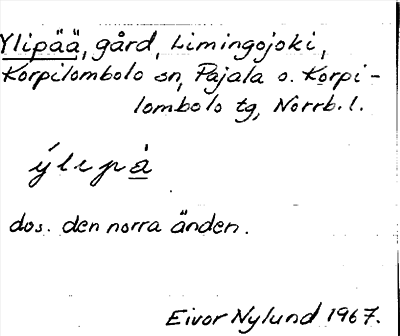 Ylipää, gård, Limingojoki,
Korpilombolo sn, Pajala o. Korpi-
lombolo tg, Norrb. l.
ýlɩpà
dos. den norra änden.
Eivor Nylund 1967.